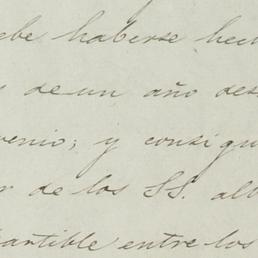 ebe haberse hec
s de un año des
venio; y consigu
r de los SS. alb
partible entre los